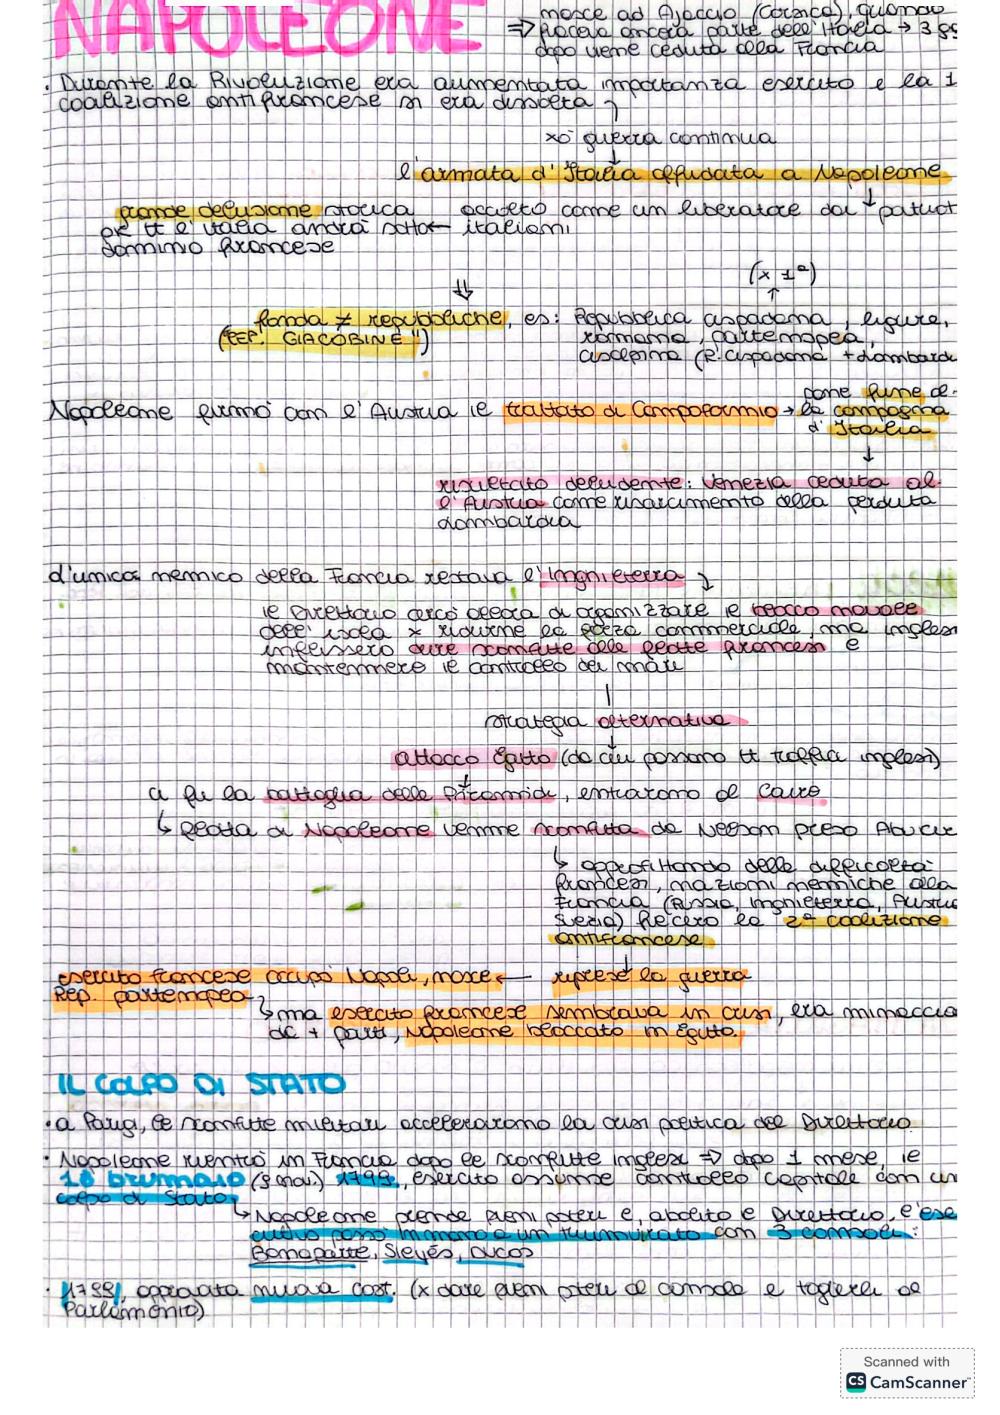 NAPOLEONE
nasce ad Ajaccio (Corsica), quando
⇒ faceva ancora parte dell'Italia → 3 gg
dopo viene ceduta alla Francia
• Durante la Rivoluzione era aumentata importanza esercito e la 1
coalizione antifrancese si era dissolta
xò guerra continua
l'armata d'Italia affidata a Napoleone
grande delusione storica accolto come un liberatore dai patriot
pk tt l'Italia andrà sotto ← italiani
dominio francese
(x 1ª)
fonda ≠ repubbliche, es: Repubblica cispadana, ligure,
(REP. GIACOBINE") romana, partenopea,
cisalpina (R. cispadana + Lombardi
pone fine al-
Napoleone firmò con l'Austria il trattato di Campoformio → la campagna
d'Italia
risultato deludente: Venezia ceduta al-
l'Austria come risarcimento della perduta
Lombardia
L'unica nemica della Francia restava l'Inghilterra
il Direttorio cercò allora di organizzare il blocco navale
dell'isola x ridurne la forza commerciale, ma inglesi
inflissero dure sconfitte alla flotta francese e
mantennero il controllo dei mari
strategia alternativa
attacco Egitto (da cui passano tt traffici inglesi)
ci fu la battaglia delle Piramidi, entrarono al Cairo
↳ flotta di Napoleone venne sconfitta da Nelson preso Abukir
↳ approfittando delle difficoltà
francesi, nazioni nemiche alla
Francia (Russia, Inghilterra, Austria
Svezia) fecero la 2ª coalizione
antifrancese
esercito francese occupò Napoli, nasce ← riprese la guerra
Rep. partenopea
↳ ma esercito francese sembrava in crisi, era minaccia
da + parti, Napoleone bloccato in Egitto.
IL COLPO DI STATO
• a Parigi, le sconfitte militari accelerarono la crisi politica del Direttorio
• Napoleone rientrò in Francia dopo le sconfitte inglesi ⇒ dopo 1 mese, il
18 brumaio (9 nov.) 1799, esercito assunse controllo capitale con un
colpo di Stato
↳ Napoleone prende pieni poteri e, abolito e Direttorio, l'ese
cutivo passò in mano a un triumvirato con 3 consoli:
Bonaparte, Sieyès, Ducos
• 1799, approvata nuova cost. (x dare pieni poteri al console e toglierli al
Parlamento)
Scanned with
CS CamScanner